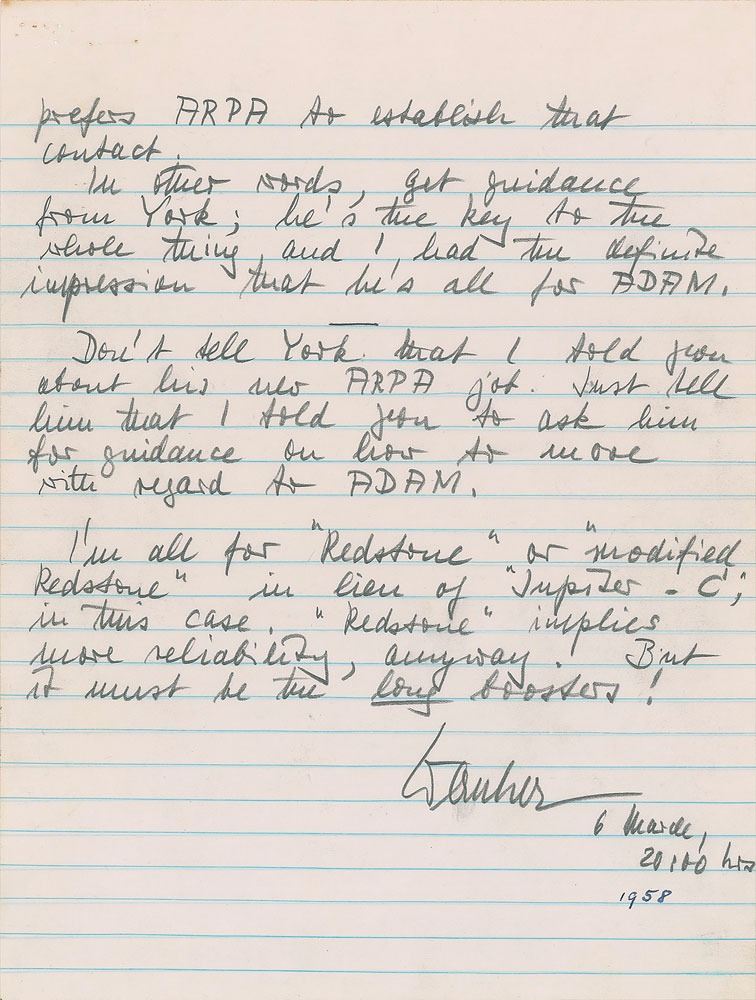 prefers ARPA to establish that
contact.
In other words, get guidance
from York; he's the key to the
whole thing and I had the definite
impression that he's all for ADAM.
Don't tell York that I told you
about his new ARPA job. Just tell
him that I told you to ask him
for guidance on how to move
with regard to ADAM.
I'm all for "Redstone" or "modified
Redstone" in lieu of "Jupiter - C";
in this case. "Redstone" implies
more reliability, anyway. But
it must be the long boosters!
6 March,
20:00 hrs
1958